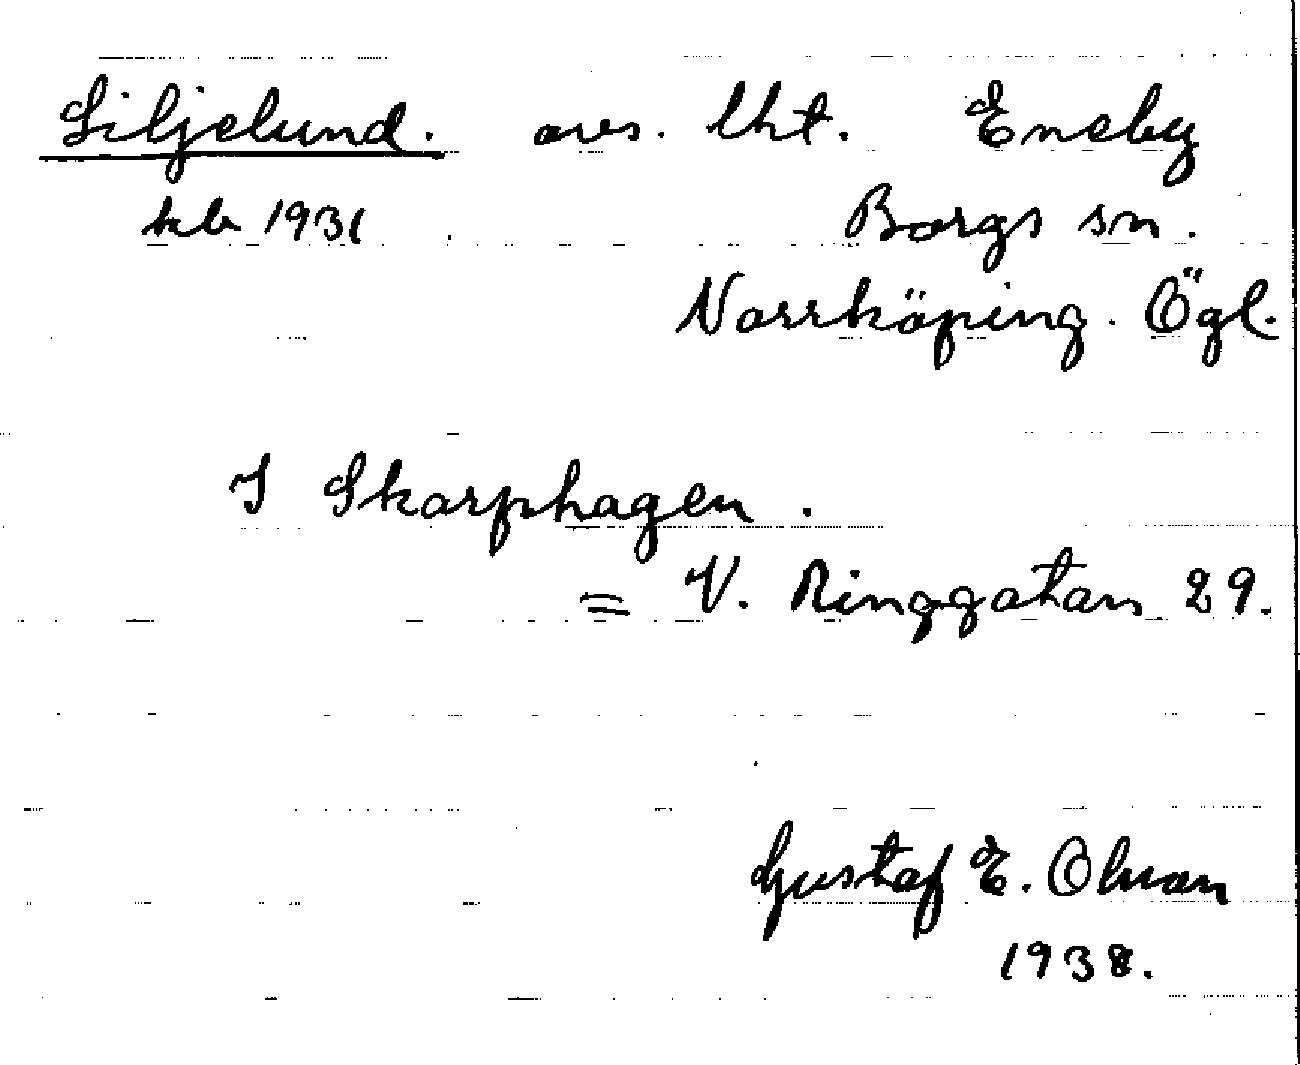 Liljelund. avs. lht. Eneby
kb 1931 Borgs sn.
Norrköping. Ögl.
I Skarphagen.
= V. Ringgatan 29.
Gustaf E. Olsson
1938.